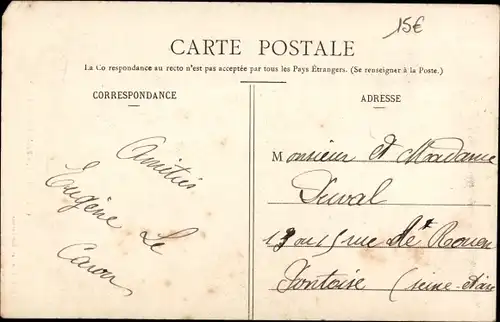 15€
CARTE POSTALE
La Co respondance au recto n'est pas acceptée par tous les Pays Étrangers. (Se renseigner à la Poste.)
CORRESPONDANCE
ADRESSE
Amitiés
Eugène Le
Monsieur et Madame
Duval
13 ou 15 rue de Rouen
Pontoise (Seine-et-Oise